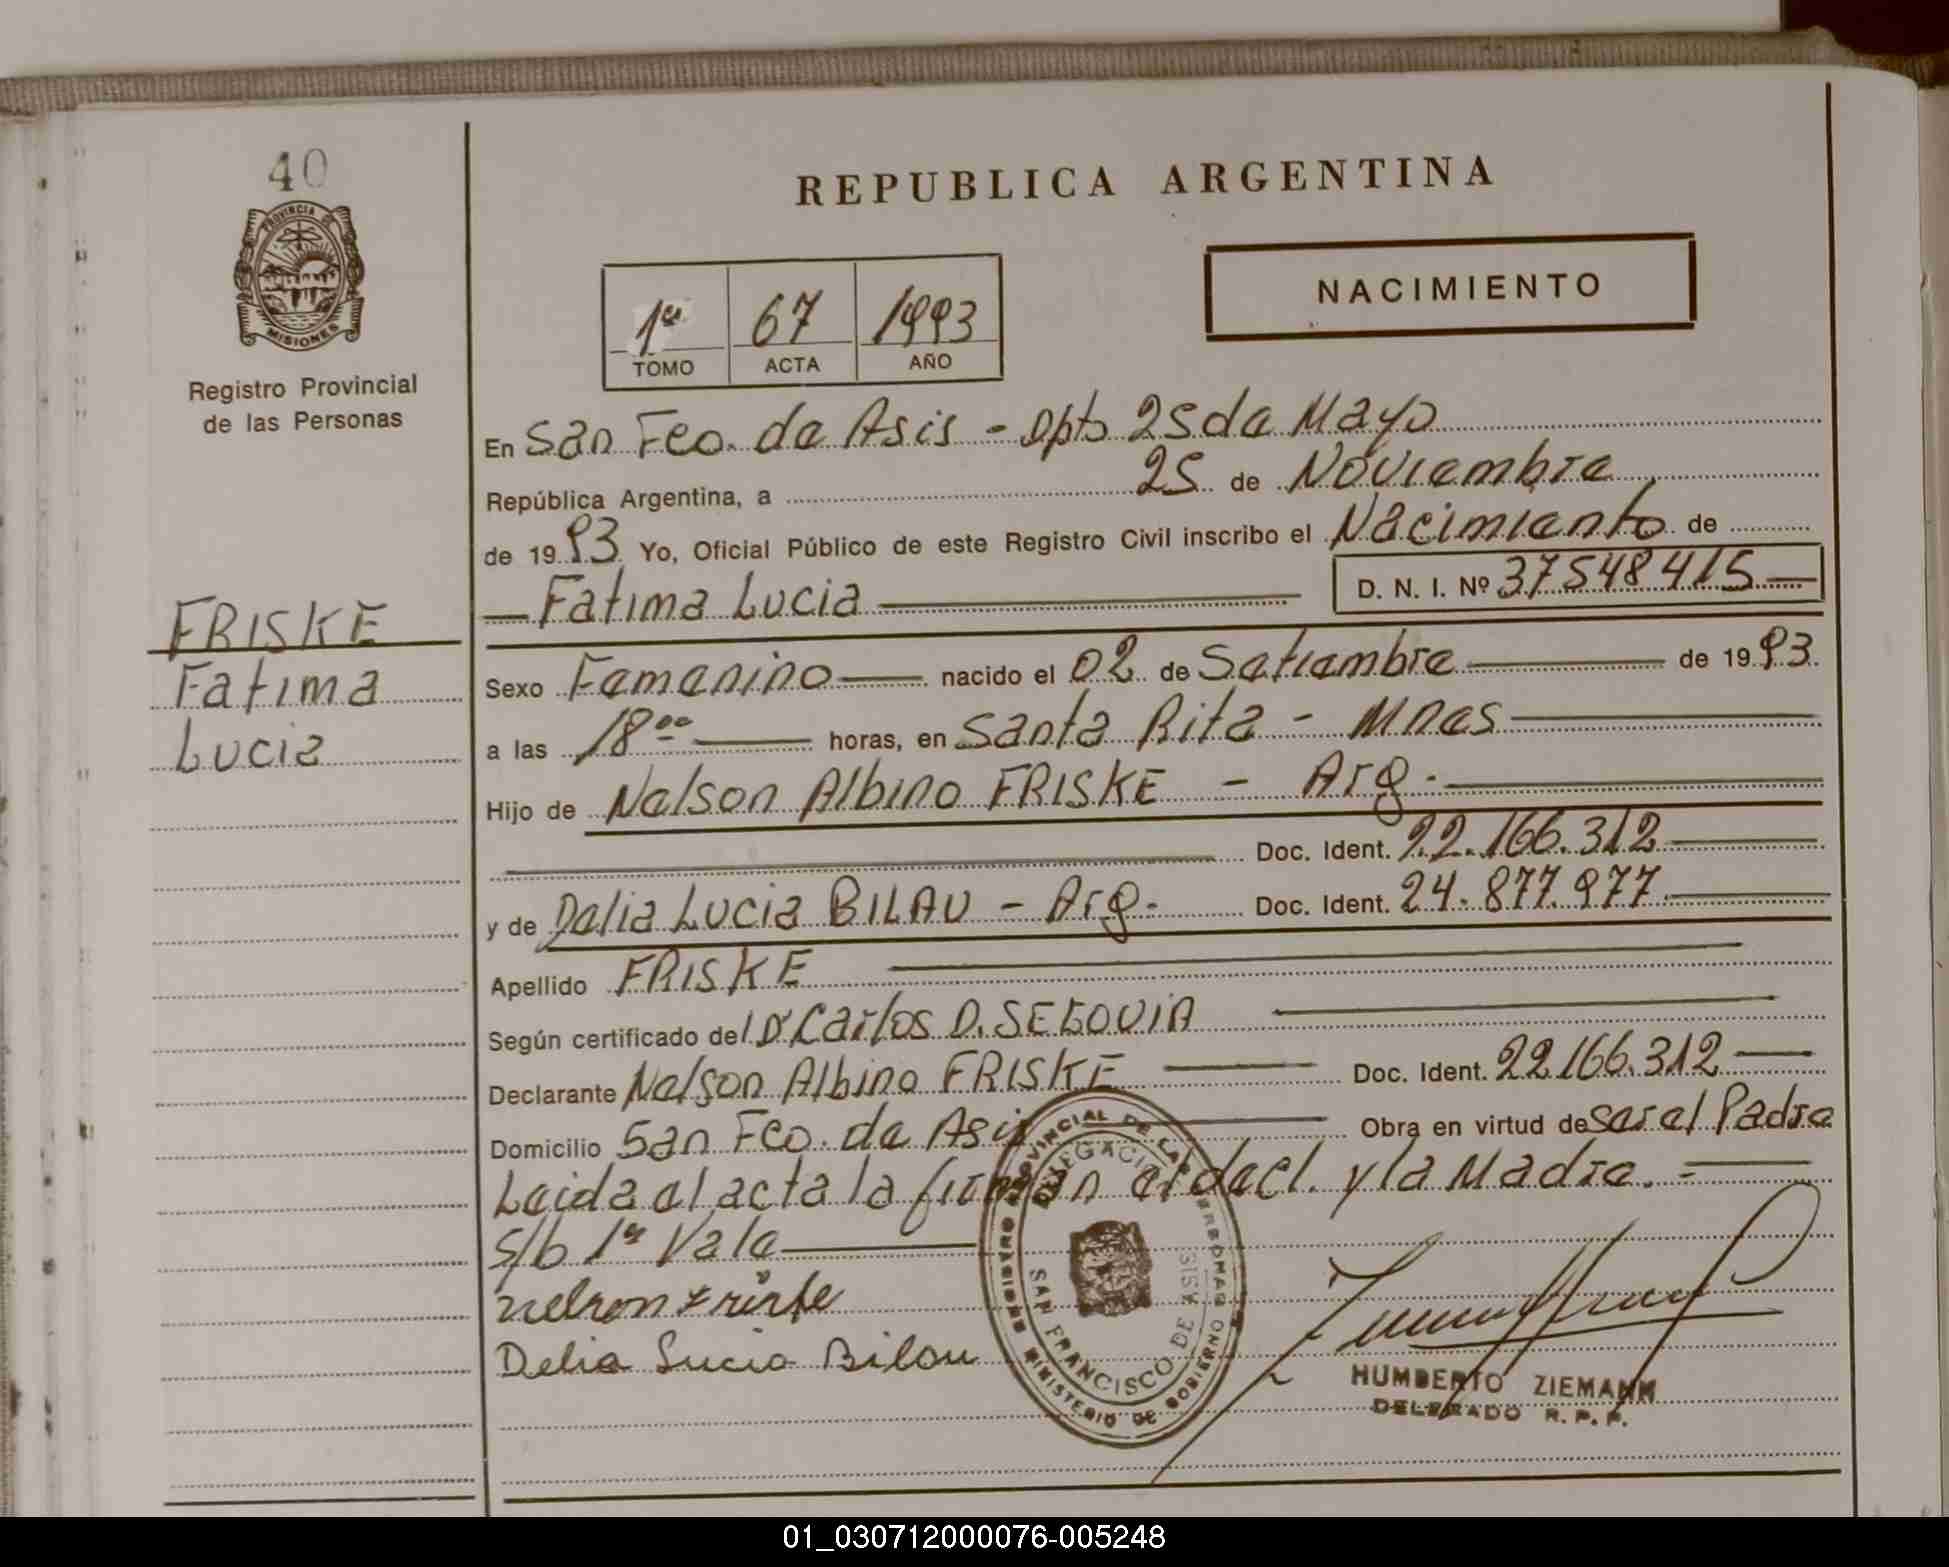 40
PROVINCIA DE
MISIONES
Registro Provincial
de las Personas
FRISKE
Fatima
Lucia
REPUBLICA ARGENTINA
NACIMIENTO
1º 67 1993
TOMO ACTA AÑO
En San Fco. de Asis - Dpto 25 de Mayo
República Argentina, a 25 de Noviembre
de 1993 Yo, Oficial Público de este Registro Civil inscribo el Nacimiento de
Fatima Lucia D. N. I. Nº 37548415
Sexo Femenino nacido el 02 de Setiembre de 1993
a las 18 ºº horas, en Santa Rita - Mnes
Hijo de Nelson Albino FRISKE - Arg.
Doc. Ident. 22.166.312
y de Delia Lucia BILAU - Arg. Doc. Ident. 24.877.977
Apellido FRISKE
Según certificado del Dr Carlos D. SEGOVIA
Declarante Nelson Albino FRISKE Doc. Ident. 22.166.312
Domicilio San Fco. de Asis Obra en virtud de ser el Padre
Leida el acta la firman el decl. y la Madre. =
S/b 1º Vale
Nelson Friske
Delia Lucia Bilau
REGISTRO PROVINCIAL DE LAS PERSONAS
DELEGACION
SAN FRANCISCO DE ASIS
MINISTERIO DE GOBIERNO
HUMBERTO ZIEMANN
DELEGADO R. P. P.
01_030712000076-005248